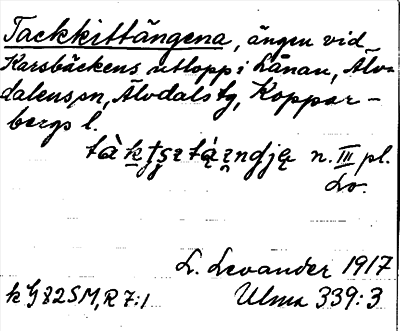 Tackkittängena, ängen vid
Karsbäckens utlopp i Lånan, Älv-
dalens sn, Älvdals tg, Koppar-
bergs l.
n. III pl.
Lo.
L. Levander 1917
k G 82SM, R 7:1 Ulma 339:3